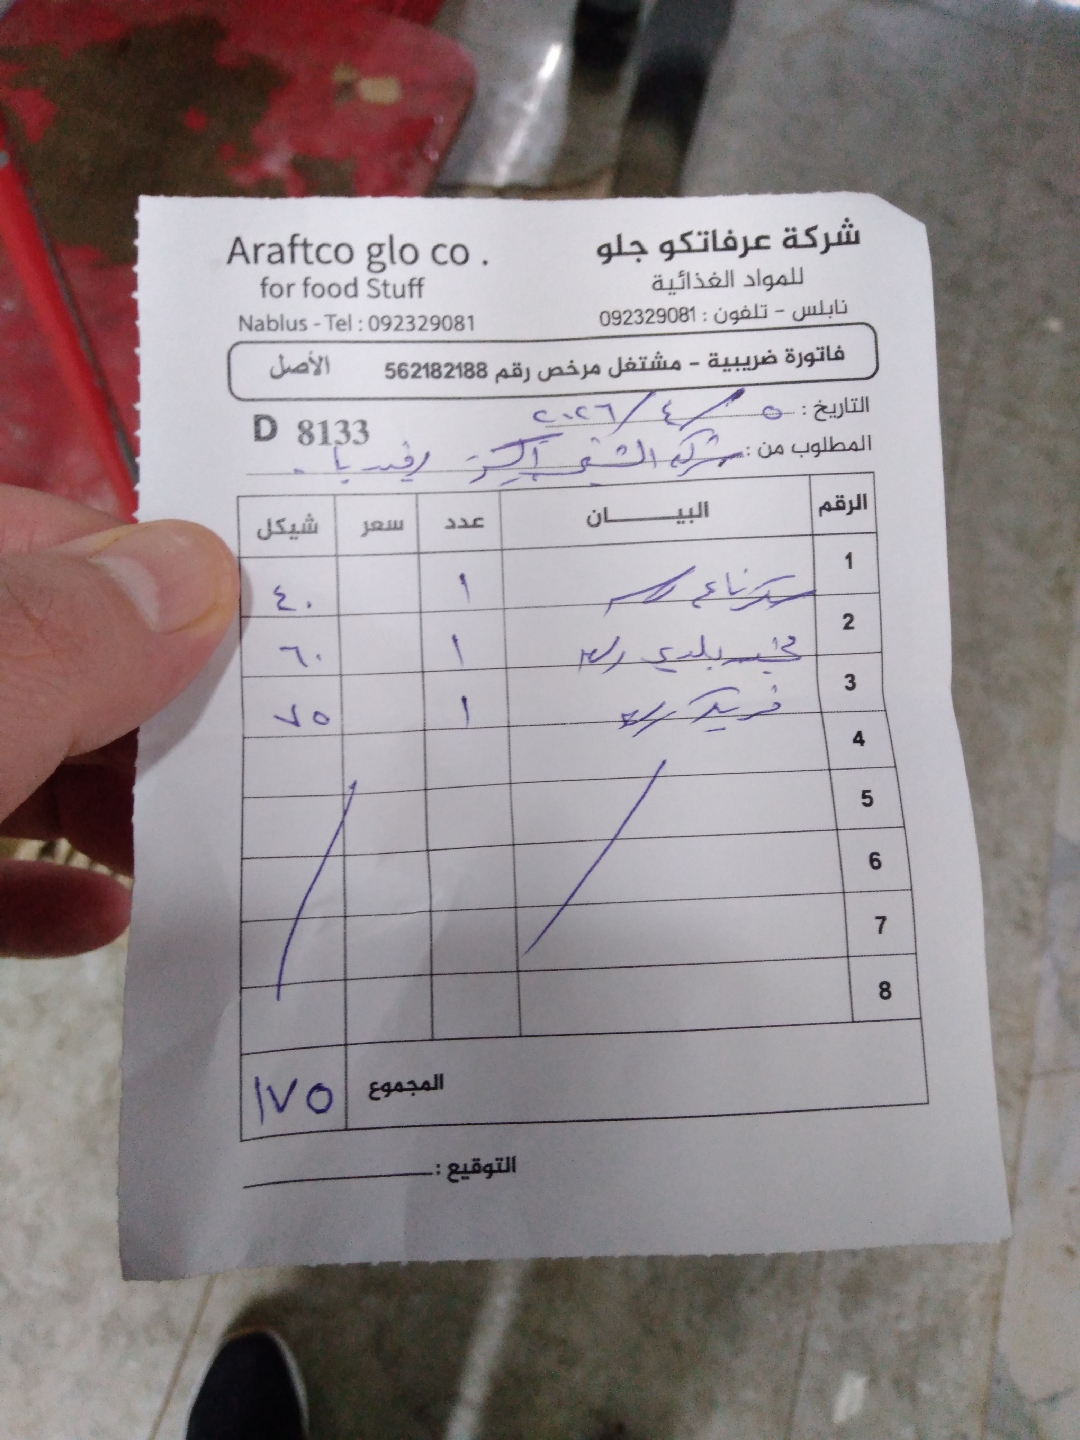 Araftco glo co .
for food Stuff
Nablus - Tel : 092329081
شركة عرفاتكو جلو
للمواد الغذائية
نابلس - تلفون : 092329081
فاتورة ضريبية - مشتغل مرخص رقم 562182188 الأصل
التاريخ : ٥ / ٤ / ٢٠٢٦
D 8133
المطلوب من : شركة الشني اكسبرس رفيديا
الرقم البيــــــان عدد سعر شيكل
1 سكر ناعم ١ ٤٠
2 بلدي ١ ٦٠
3 فريكة ١ ٧٥
4
5
6
7
8
المجموع ١٧٥
التوقيع :